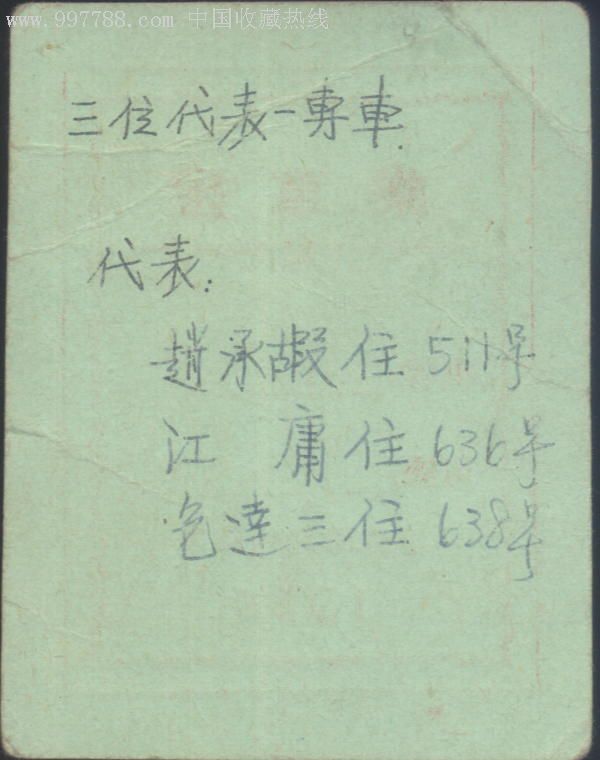 www.997788.com 中国收藏热线
三位代表一専車
代表:
趙承嘏住511号
江庸住636号
包達三住638号